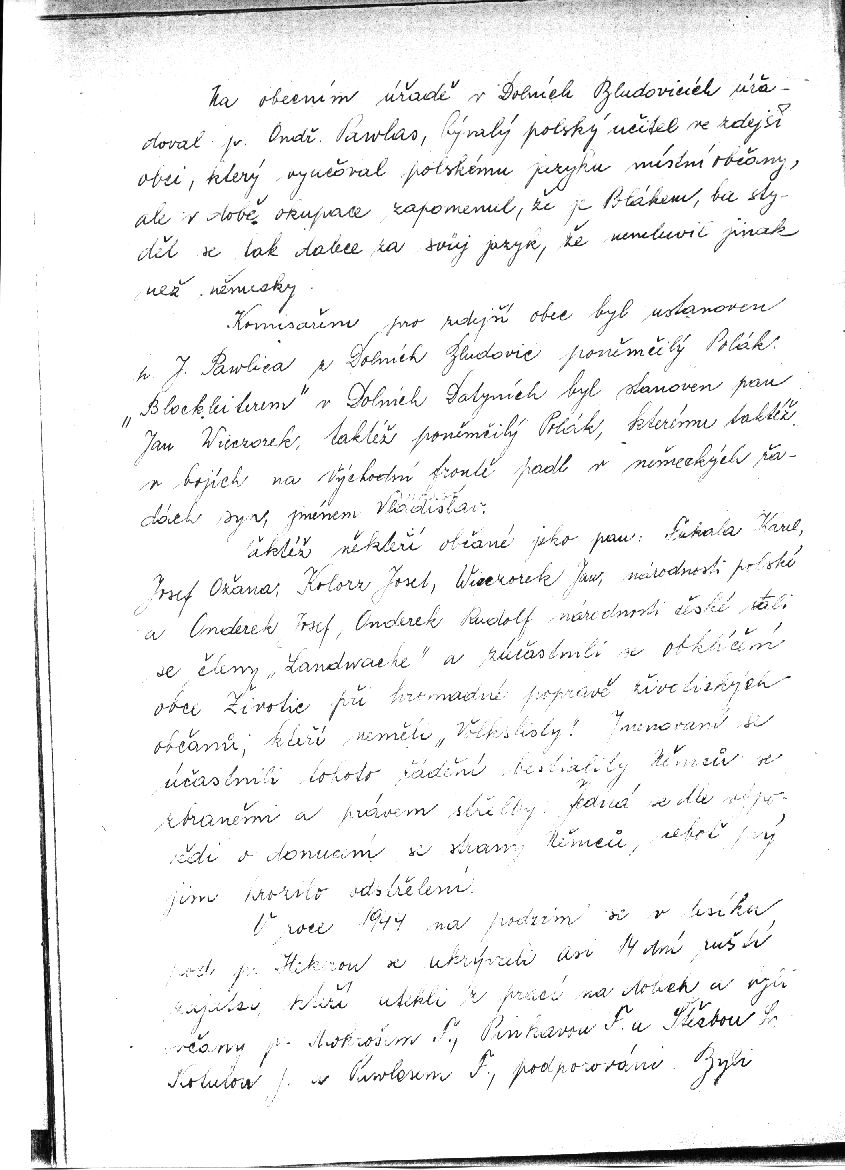 Na obecním úřadě v Dolních Bludovicích úřa-
doval p. Ondř. Pawlas, bývalý polský učitel ve zdejší
obci, který vyučoval polskému jazyku místní občany,
ale v době okupace zapomenul, že je Polákem, ba sty-
děl se tak dalece za svůj jazyk, že nemluvil jinak
než německy.
Komisařem pro zdejší obec byl ustanoven
p. J. Pawlica z Dolních Bludovic poněmčilý Polák.
"Blockleiterem" v Dolních Datyních byl stanoven pan
Jan Wieczorek, taktéž poněmčilý Polák, kterému taktéž
v bojích na východní frontě padl v německých řa-
dách syn, jménem Vladislav.
Taktéž někteří občané jako pan: Fukala Karel,
Josef Ožana, Kolorz Josef, Wieczorek Jan, národnosti polské
a Onderek Josef, Onderek Rudolf národnosti české stali
se členy "Landwache" a zúčastnili se obklíčení
obce Životic při hromadné popravě životických
občanů, kteří neměli "Volkslisty". Jmenovaní se
účastnili tohoto řádění bestiality Němců se
zbraněmi a právem střelby. Jedná se dle výpo-
vědi o donucení se strany Němců, neboť prý
jim hrozilo odstřelení.
V roce 1944 na podzim se v lesíku
pod p. se ukrývali asi 14 dní ruští
zajatci, kteří utekli z prací na dolech a byli
občany p. Mokrošem F., Pinkavou F. a
p. a Pawlasem F., podporováni. Byli